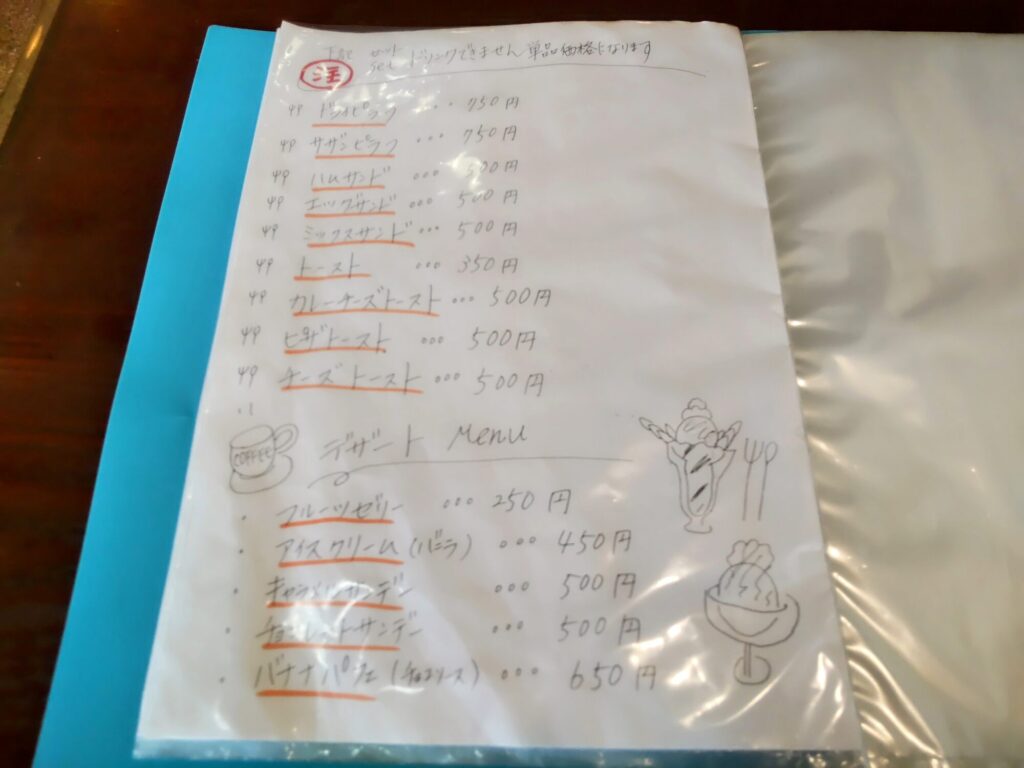 下記 セット ドリンクできません 単品価格になります
注 Set
ドライピラフ ・・・ 750円
サザンピラフ ・・・ 750円
ハムサンド ・・・ 500円
エッグサンド ・・・ 500円
ミックスサンド ・・・ 500円
トースト ・・・ 350円
カレーチーズトースト ・・・ 500円
ピザトースト ・・・ 500円
チーズトースト ・・・ 500円
COFFEE デザート Menu
・ フルーツゼリー ・・・ 250円
・ アイスクリーム (バニラ) ・・・ 450円
・ キャラメルサンデー ・・・ 500円
・ チョコレートサンデー ・・・ 500円
・ バナナパフェ (チョコソース) ・・・ 650円